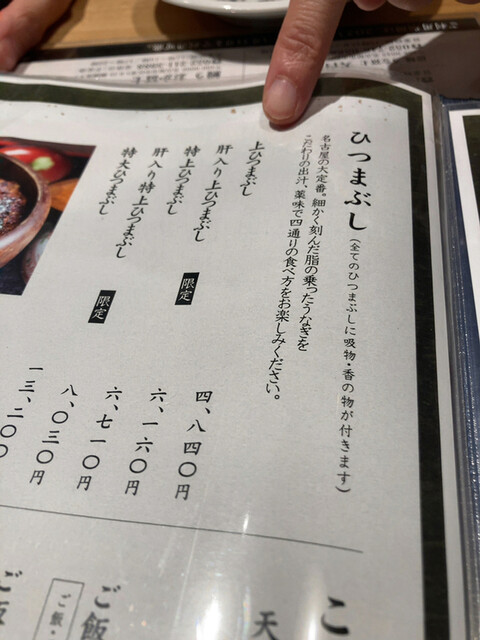 ひつまぶし(全てのひつまぶしに吸物・香の物が付きます)
名古屋の大定番。細かく刻んだ脂の乗ったうなぎを
こだわりの出汁、薬味で四通りの食べ方をお楽しみください。
上ひつまぶし 四、八四〇円
肝入り上ひつまぶし 六、一六〇円
特上ひつまぶし 限定 六、七一〇円
肝入り特上ひつまぶし 八、〇三〇円
特大ひつまぶし 限定 一三、二〇〇
こ
天
ご飯
ご飯・
ご飯